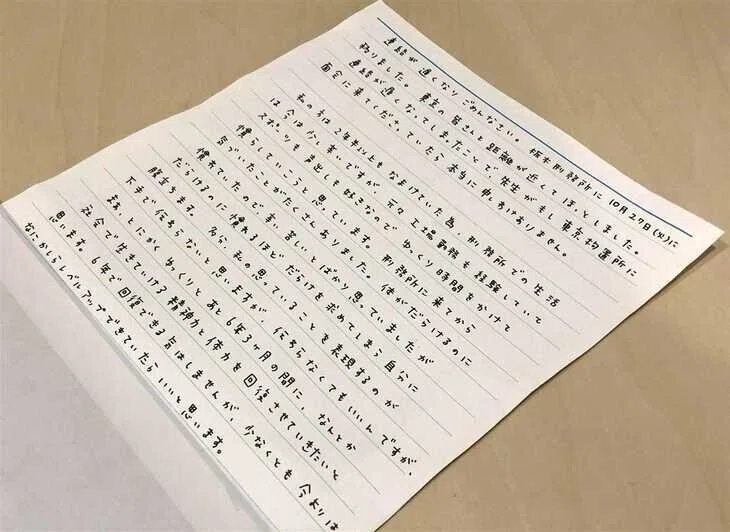 連絡が遅くなりごめんなさい。栃木刑務所に10月27日(火)に
移りました。東京の皆さんと距離が近くてほっとしました。
連絡が遅くなってしまったことで先生がもし東京拘置所に
面会に来てくださっていたら本当に申しわけありません。
私の方は2年半以上もなまけていた為、刑務所での生活
は今は少し苦いですが、元々工場勤務も経験していて
スポーツも声出しも好きなので、ゆっくり時間をかけて
慣らしていこうと思っています。刑務所に来てから
気づいたことがたくさんありました。体がだらけるのに
慣れていたので苦い、苦しいとばかり思っていましたが
だらけるのに慣れるほどだらけを求めてしまう自分に
腹立ちます。多分、私の思っていることを表現するのが
下手で伝わらないと思いますが、伝わらなくてもいいんですが、
まぁ、とにかくゆっくりとあと6年3ヶ月の間に、なんとか
社会で生きていける精神力と体力を回復させていきたいと
思います。6年で回復できる気はしませんが、少なくとも今よりは
なにかしらレベルアップできていたらいいと思います。